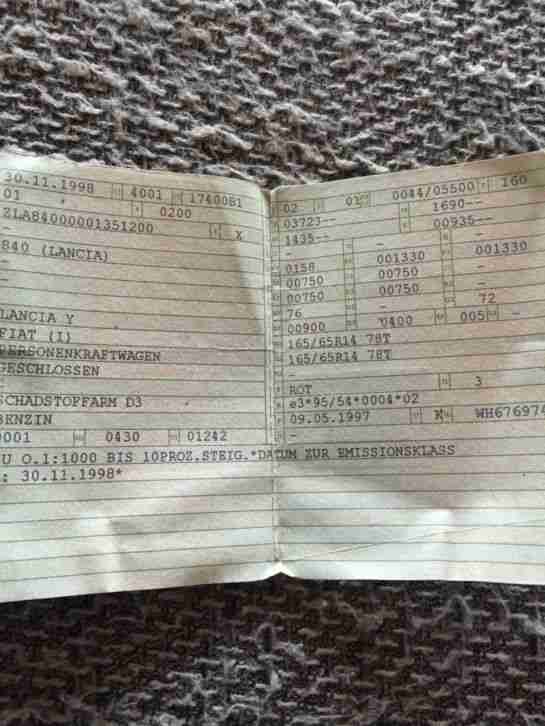 30.11.1998 4001 1740081
01 0200
ZLA84000001351200 X
-
840 (LANCIA)
-
LANCIA Y
FIAT (I)
PERSONENKRAFTWAGEN
GESCHLOSSEN
-
SCHADSTOFFARM D3
BENZIN
0001 0430 01242
U 0.1:1000 BIS 10PROZ.STEIG.*DATUM ZUR EMISSIONSKLASS
: 30.11.1998*
02 0044/05500 160
03723-- 1690--
1435-- 00935--
- -
0158 001330 001330
00750 00750 -
00750 00750 -
76 - 72
00900 0400 005 -
165/65R14 78T
165/65R14 78T
-
-
ROT 3
e3*95/54*0004*02
09.05.1997 K WH676974
-